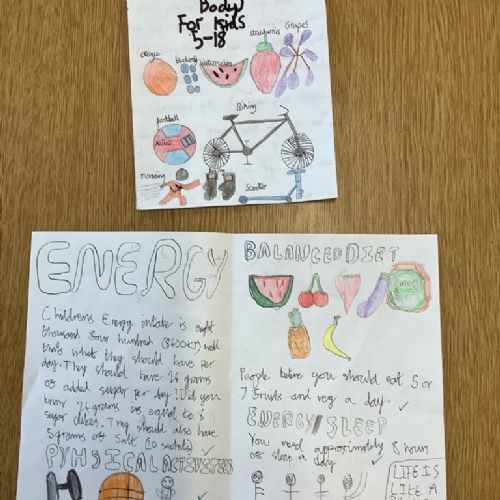 Body
For Kids
5-18
orange
blueberry
watermelon
strawberries
Grapes
football
Biking
running
Scooter
ENERGY
Childrens Energy intake is eight
thousand four hundred (8400KJ) well
thats what they should have per
day. They should have 24 grams
of added sugar per day! Did you
know 24 grams is equal to 6
sugar cubes. They should also have
5 grams of Salt (10 sachets)
PYHSICAL ACTIVITIES
BALANCED DIET
People belive you should eat 5 or
7 fruits and veg a day.
ENERGY/SLEEP
You need approximately 8 hours
of sleep a day.
LIFE IS
LIKE A